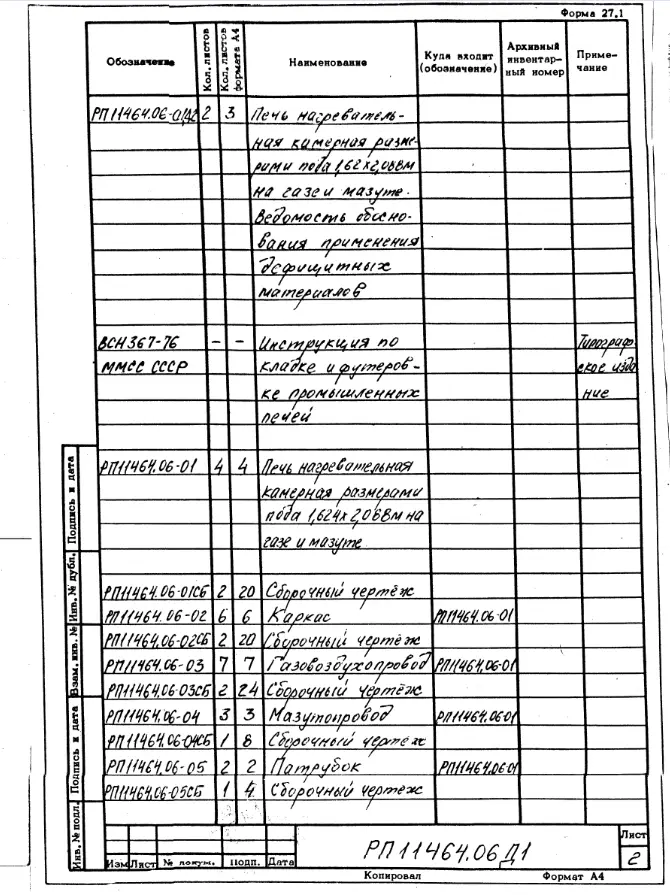 Форма 27.1
Обозначение Кол. листов Кол. листов формата А4 Наименование Куда входит (обозначение) Архивный инвентарный номер Примечание
РП11464.06-01Д2 2 3 Печь нагреватель-
ная камерная разме-
рами пода 1,624х2,088м
на газе и мазуте.
Ведомость обосно-
вания применения
дефицитных
материалов
ВСН367-76 – – Инструкция по Типограф-
ММСС СССР кладке и футеров- ское изда
ке промышленных ние
печей
РП11464.06-01 4 4 Печь нагревательная
камерная размерами
пода 1,624х2,088м на
газе и мазуте
РП11464.06-01СБ 2 20 Сборочный чертёж
РП11464.06-02 6 6 Каркас РП11464.06-01
РП11464.06-02СБ 2 20 Сборочный чертёж
РП11464.06-03 7 7 Газовоздухопровод РП11464.06-01
РП11464.06-03СБ 2 24 Сборочный чертёж
РП11464.06-04 3 3 Мазутопровод РП11464.06-01
РП11464.06-04СБ 1 8 Сборочный чертёж
РП11464.06-05 2 2 Патрубок РП11464.06-01
РП11464.06-05СБ 1 4 Сборочный чертеж
Инв. № подл. Подпись и дата Взам. инв. № Инв. № дубл. Подпись и дата
Изм Лист № докум. Подп. Дата
РП11464.06Д1
Лист
2
Копировал Формат А4